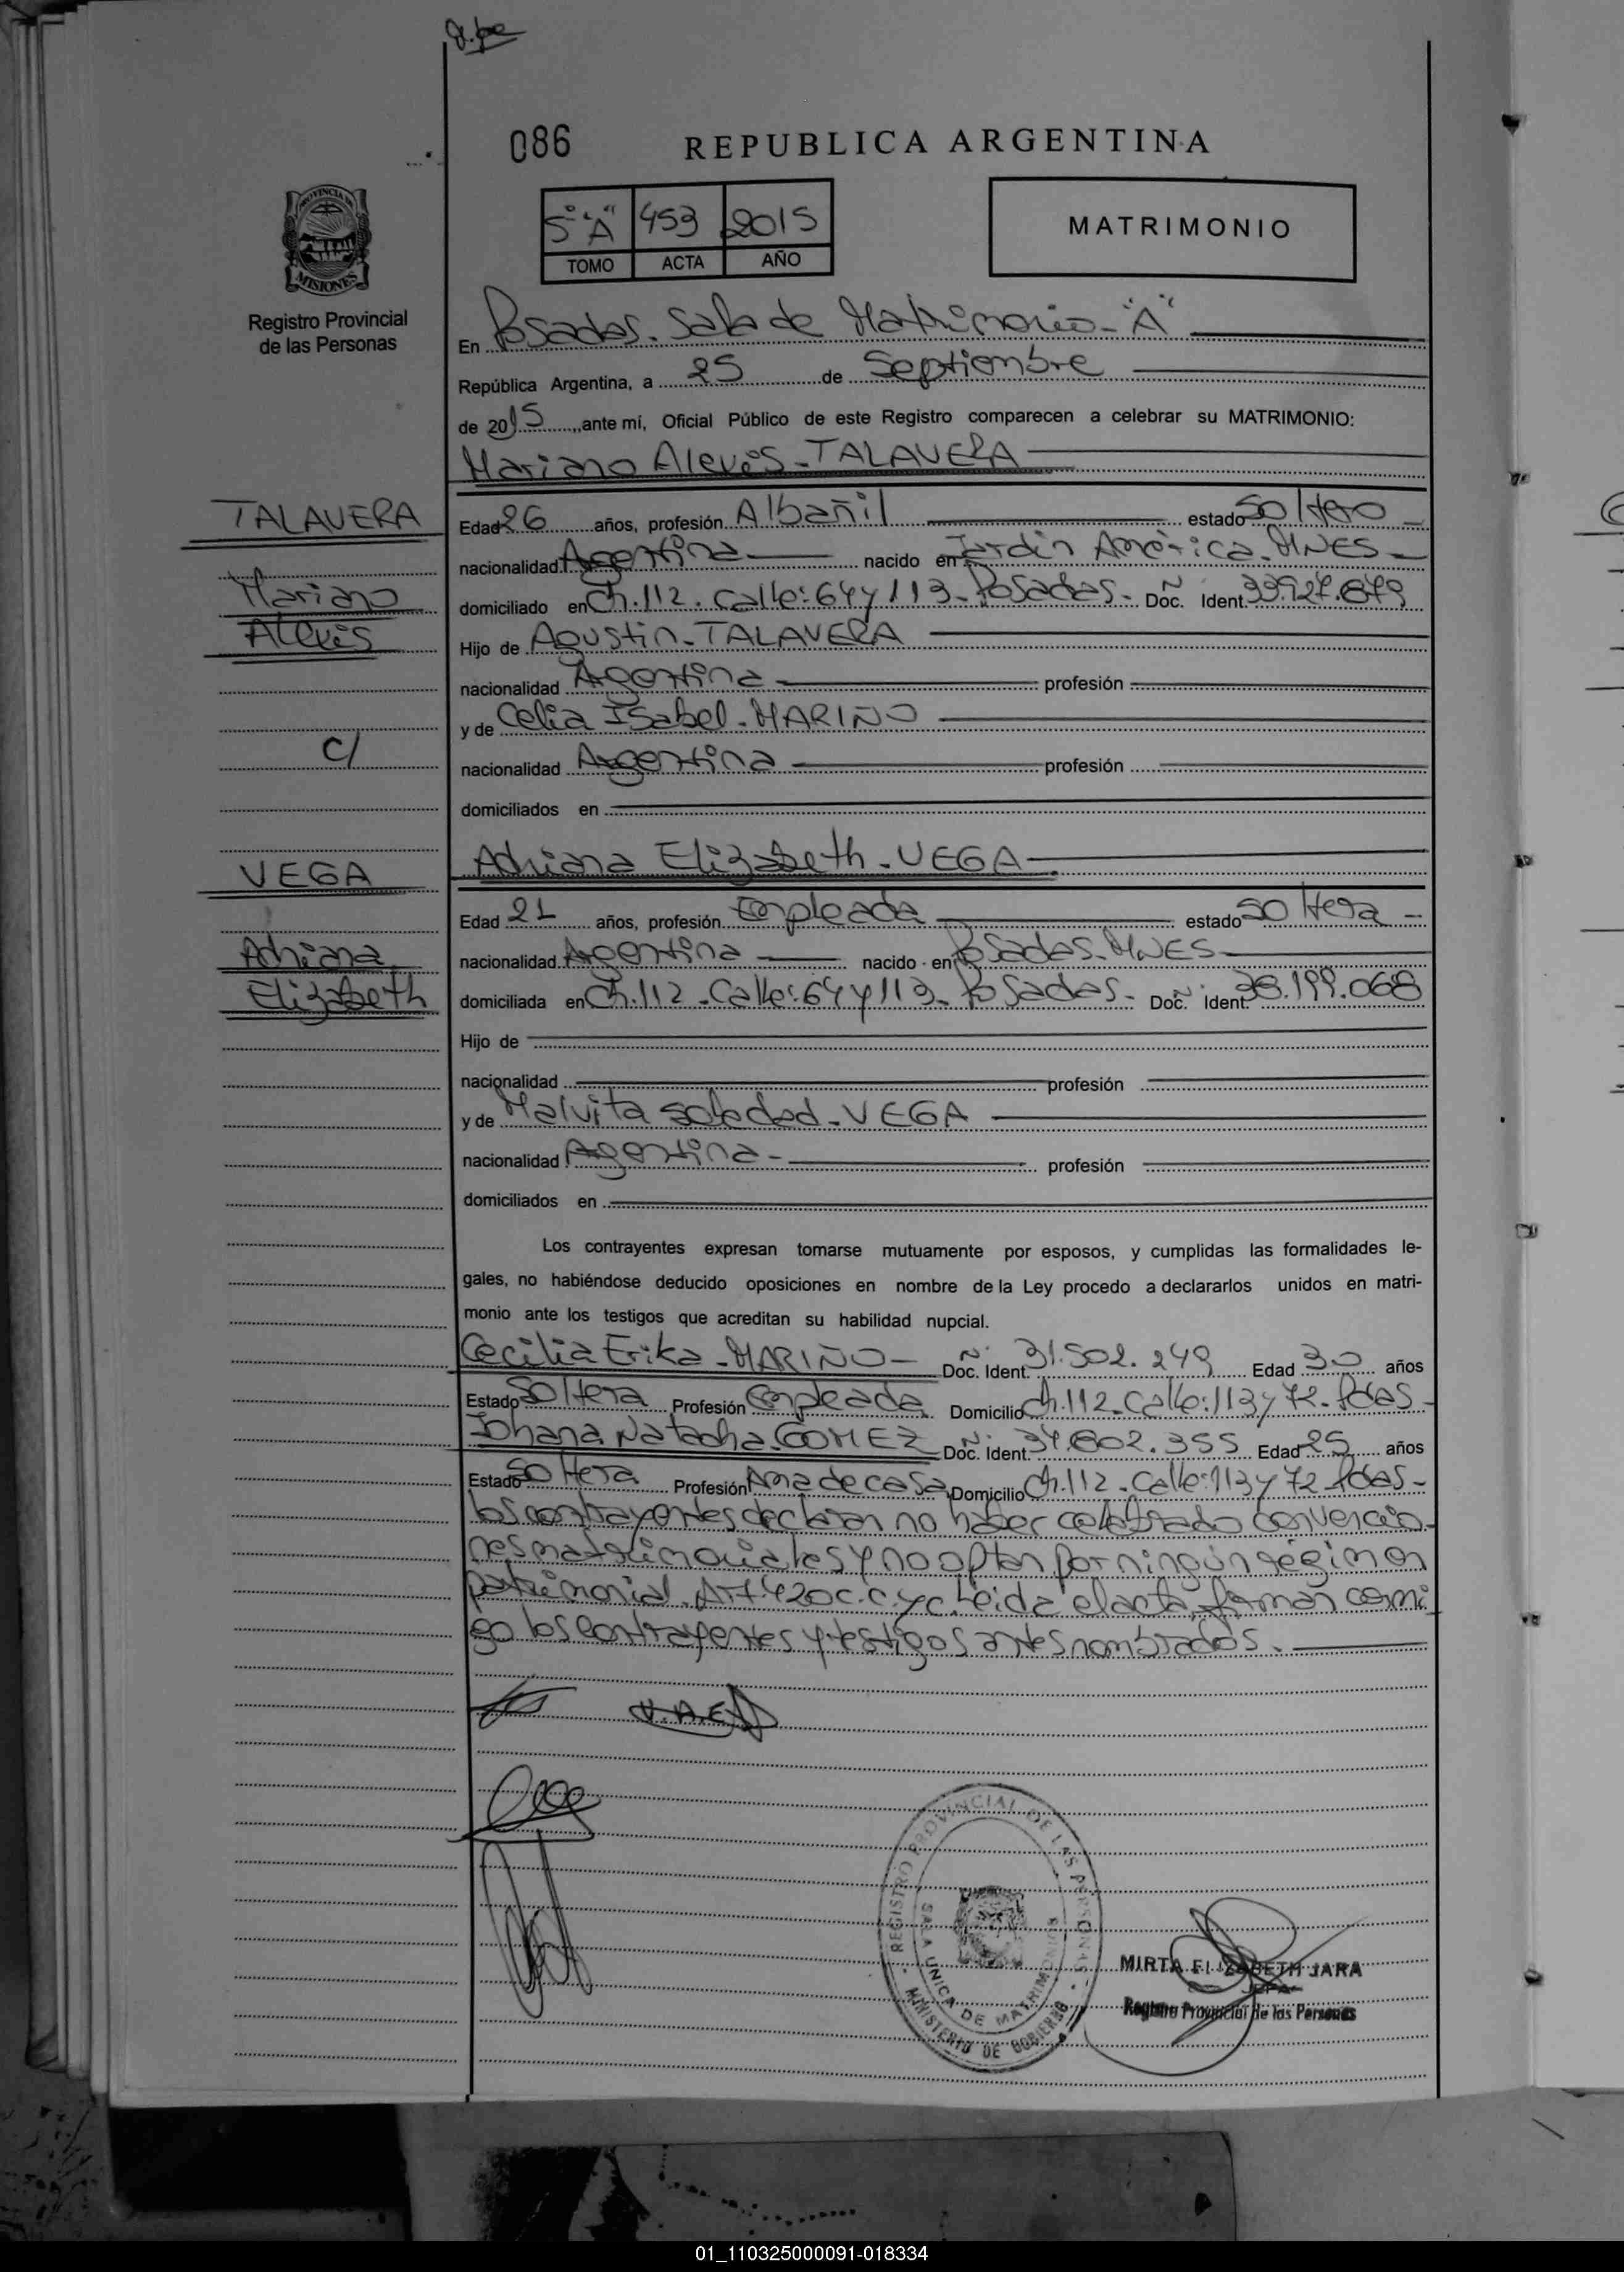 086
REPUBLICA ARGENTINA
PROVINCIA DE
MISIONES
Registro Provincial
de las Personas
5° "A" 453 2015
TOMO ACTA AÑO
MATRIMONIO
En Posadas. Sala de Matrimonio - "A"
República Argentina, a 25 de Septiembre
de 2015, ante mí, Oficial Público de este Registro comparecen a celebrar su MATRIMONIO:
Mariano Alexis - TALAVERA
TALAVERA
Mariano
Alexis
c/
VEGA
Adriana
Elizabeth
Edad 26 años, profesión Albañil estado Soltero
nacionalidad Argentina nacido en Jardín América. MNES
domiciliado en Ch. 112. Calle: 64 y 113 - Posadas - Doc. Ident. 33.927.879
Hijo de Agustin - TALAVERA
nacionalidad Argentina profesión
y de Celia Isabel - MARIÑO
nacionalidad Argentina profesión
domiciliados en
Adriana Elizabeth - VEGA
Edad 21 años, profesión Empleada estado Soltera
nacionalidad Argentina nacido en Posadas. MNES
domiciliada en Ch. 112 - Calle: 64 y 113 - Posadas - Doc. Ident. 38.199.068
Hijo de
nacionalidad profesión
y de Malvita Soledad - VEGA
nacionalidad Argentina - profesión
domiciliados en
Los contrayentes expresan tomarse mutuamente por esposos, y cumplidas las formalidades le-
gales, no habiéndose deducido oposiciones en nombre de la Ley procedo a declararlos unidos en matri-
monio ante los testigos que acreditan su habilidad nupcial.
Cecilia Erika - MARIÑO - Doc. Ident. 31.502.249 Edad 30 años
Estado Soltera Profesión Empleada Domicilio Ch. 112 - Calle: 113 y 72 - Pdas -
Johana Natacha GOMEZ Doc. Ident. 34.802.355 Edad 25 años
Estado Soltera Profesión Ama de casa Domicilio Ch. 112 - Calle: 113 y 72 Pdas -
los contrayentes declaran no haber celebrado convencio-
nes matrimoniales y no optan por ningún régimen
patrimonial. Art. 420 C.C. y C. Leida el acta, firman conmi
go los contrayentes y testigos antes nombrados.
V.A.E
REGISTRO PROVINCIAL DE LAS PERSONAS
SALA UNICA DE MATRIMONIOS
MINISTERIO DE GOBIERNO
MIRTA ELIZABETH JARA
JEFA
Registro Provincial de las Personas
01_110325000091-018334